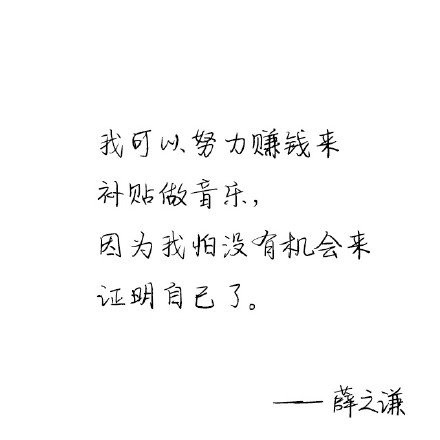 我可以努力赚钱来
补贴做音乐，
因为我怕没有机会来
证明自己了。
——薛之谦